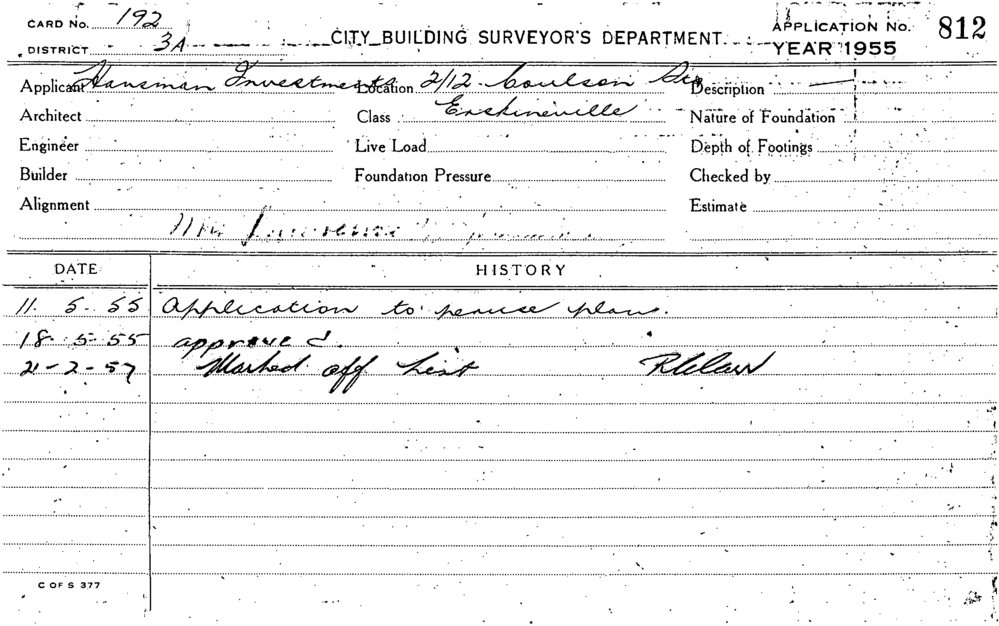 CARD No. 192
DISTRICT 3A
CITY BUILDING SURVEYOR'S DEPARTMENT
APPLICATION No. 812
YEAR 1955
Applicant Hansman Investments Location 2/12 Coulson St Description —
Architect Class Erskineville Nature of Foundation
Engineer Live Load Depth of Footings
Builder Foundation Pressure Checked by
Alignment Estimate
DATE HISTORY
11. 5. 55 Application to peruse plans.
18. 5. 55 approved.
21-2-57 Marked off List
C OF S 377